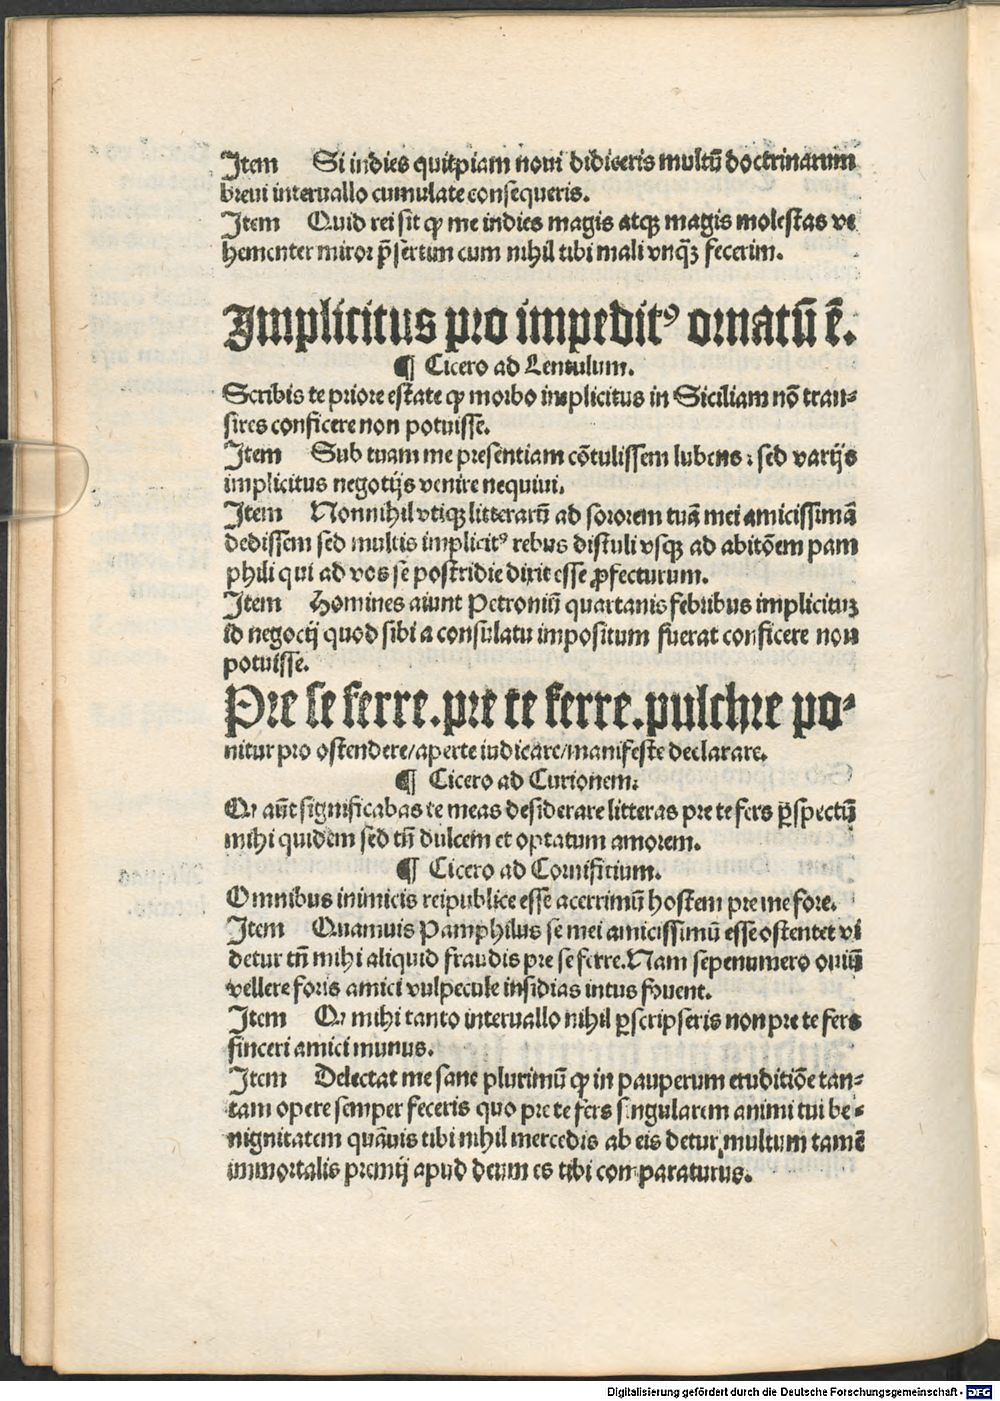 Item Si indies quitpiam noui didiceris multū doctrinarum
breui interuallo cumulate consequeris.
Item Quid rei sit ꝙ me indies magis atqꝫ magis molestas ve
hementer miror p̄sertim cum nihil tibi mali vnq̄ꝫ fecerim.
Implicitus pro impeditꝰ ornatū ē.
¶ Cicero ad Lentulum.
Scribis te priore estate ꝙ morbo implicitus in Siciliam nō tran⸗
sires conficere non potuisse.
Item Sub tuam me presentiam cōtulissem lubens : sed varijs
implicitus negotijs venire nequiui.
Item Nonnihil vtiqꝫ litterarū ad sororem tuā mei amicissimā
dedissem sed multis implicitꝰ rebus distuli vsqꝫ ad abitōem pam
phili qui ad vos se postridie dixit esse ꝓfecturum.
Item Homines aiunt Petroniū quartanis febribus implicituꝫ
id negocij quod sibi a consulatu impositum fuerat conficere non
potuisse.
Pre se ferre.pre te ferre.pulchre po⸗
nitur pro ostendere/aperte iudicare/manifeste declarare.
¶ Cicero ad Curionem.
Qꝛ aūt significabas te meas desiderare litteras pre te fers ꝑspectū
mihi quidem sed tn̄ dulcem et optatum amorem.
¶ Cicero ad Cornificium.
Omnibus inimicis reipublice esse acerrimū hostem pre me fore.
Item Quamuis Pamphilus se mei amicissimū esse ostentet vi
detur tn̄ mihi aliquid fraudis pre se ferre.Nam sepenumero ouiū
vellere foris amici vulpecule insidias intus fouent.
Item Qꝛ mihi tanto interuallo nihil ꝑscripseris non pre te fers
sinceri amici munus.
Item Delectat me sane plurimū ꝙ in pauperum eruditiōe tan⸗
tam opere semper feceris quo pre te fers singularem animi tui be⸗
nignitatem quāuis tibi nihil mercedis ab eis detur, multum tamē
immortalis premij apud deum es tibi comparaturus.
Digitalisierung gefördert durch die Deutsche Forschungsgemeinschaft - DFG